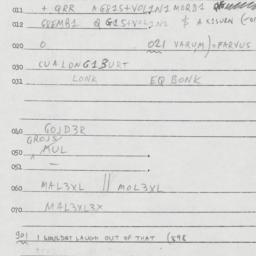 011 + QRR AG815+VOL1N1 MORB1
012 GREMB1 Q G15+VOL1N1 & A
020 O 021 VARUM)=PARVUS
030 CUALONG13URT
031 LONK EQ BONK
040 GOJD3R
GROSS
050 MUL
051 —
060 MAL3XL || MOL3XL
070 MAL3XL3X
901 I WOULDNT LAUGH OUT OF THAT